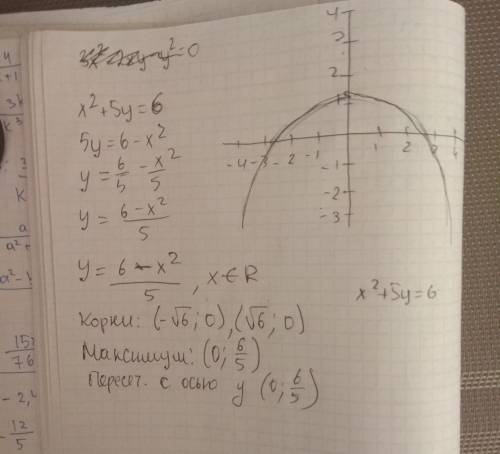 x²+5y=6
5y=6-x²
y=6/5-x²/5
y=(6-x²)/5
y=(6-x²)/5, x∈R
Корни: (-√6; 0), (√6; 0)
Максимум: (0; 6/5)
Пересеч. с осью y (0; 6/5)
4
3
2
1
-4 -3 -2 -1 1 2 3 4
-1
-2
-3
x²+5y=6